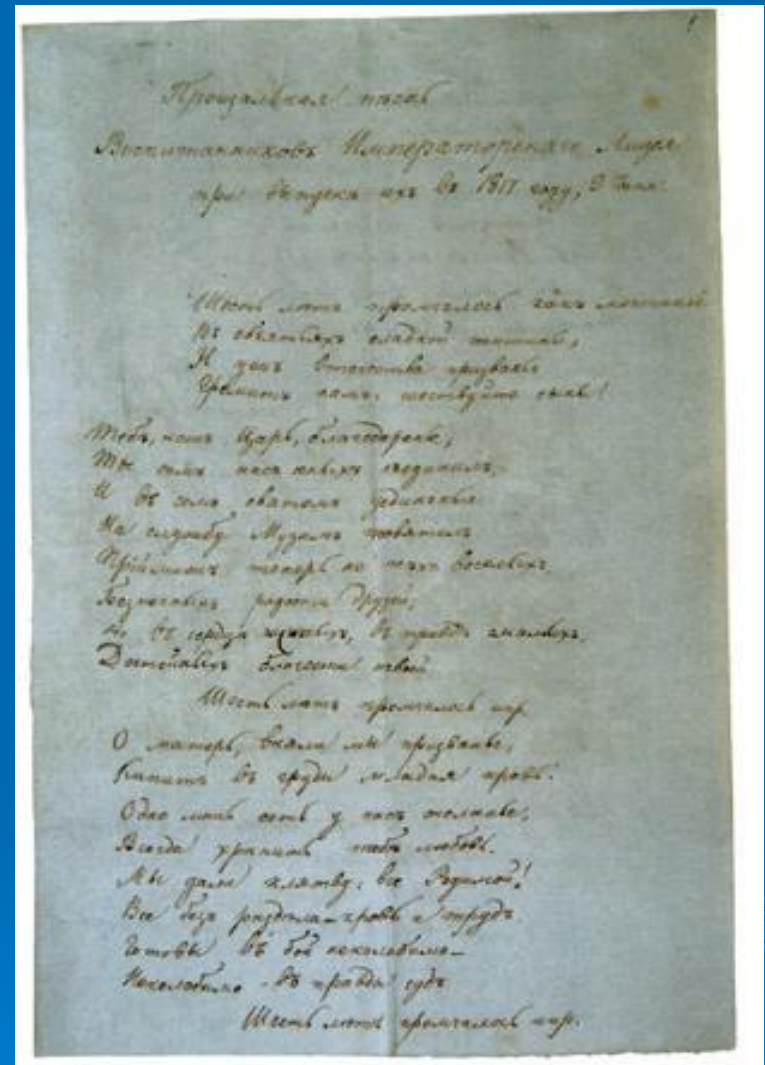 Прощальная пѣснь
Воспитанниковъ Императорскаго Лицея
при выпускѣ ихъ въ 1817 году, 9 Іюня.
Шесть лѣтъ промчалось какъ мечтанье
Въ объятьяхъ сладкой тишины,
И ужъ Отечества призванье
Гремитъ намъ: шествуйте сыны!
Тебѣ, нашъ Царь, благодаренье,
Ты самъ насъ юныхъ съединилъ,
И въ семъ святомъ уединеньи
На службу Музамъ посвятилъ
теперь не тѣхъ веселыхъ
радости друзей,
Но въ сердцѣ чистыхъ, въ правдѣ смѣлыхъ,
Достойныхъ благости твоей
Шесть лѣтъ промчалось
О матерь, вняли мы призванье,
Кипитъ въ груди младая кровь!
Одно лишь есть у насъ желанье,
Всегда хранить любовь.
Мы дали клятву: все Родимой!
Все безъ раздѣла – кровь и трудъ
Готовы въ бой неколебимо –
Неколебимо – въ правды судъ
Шесть лѣтъ промчалось